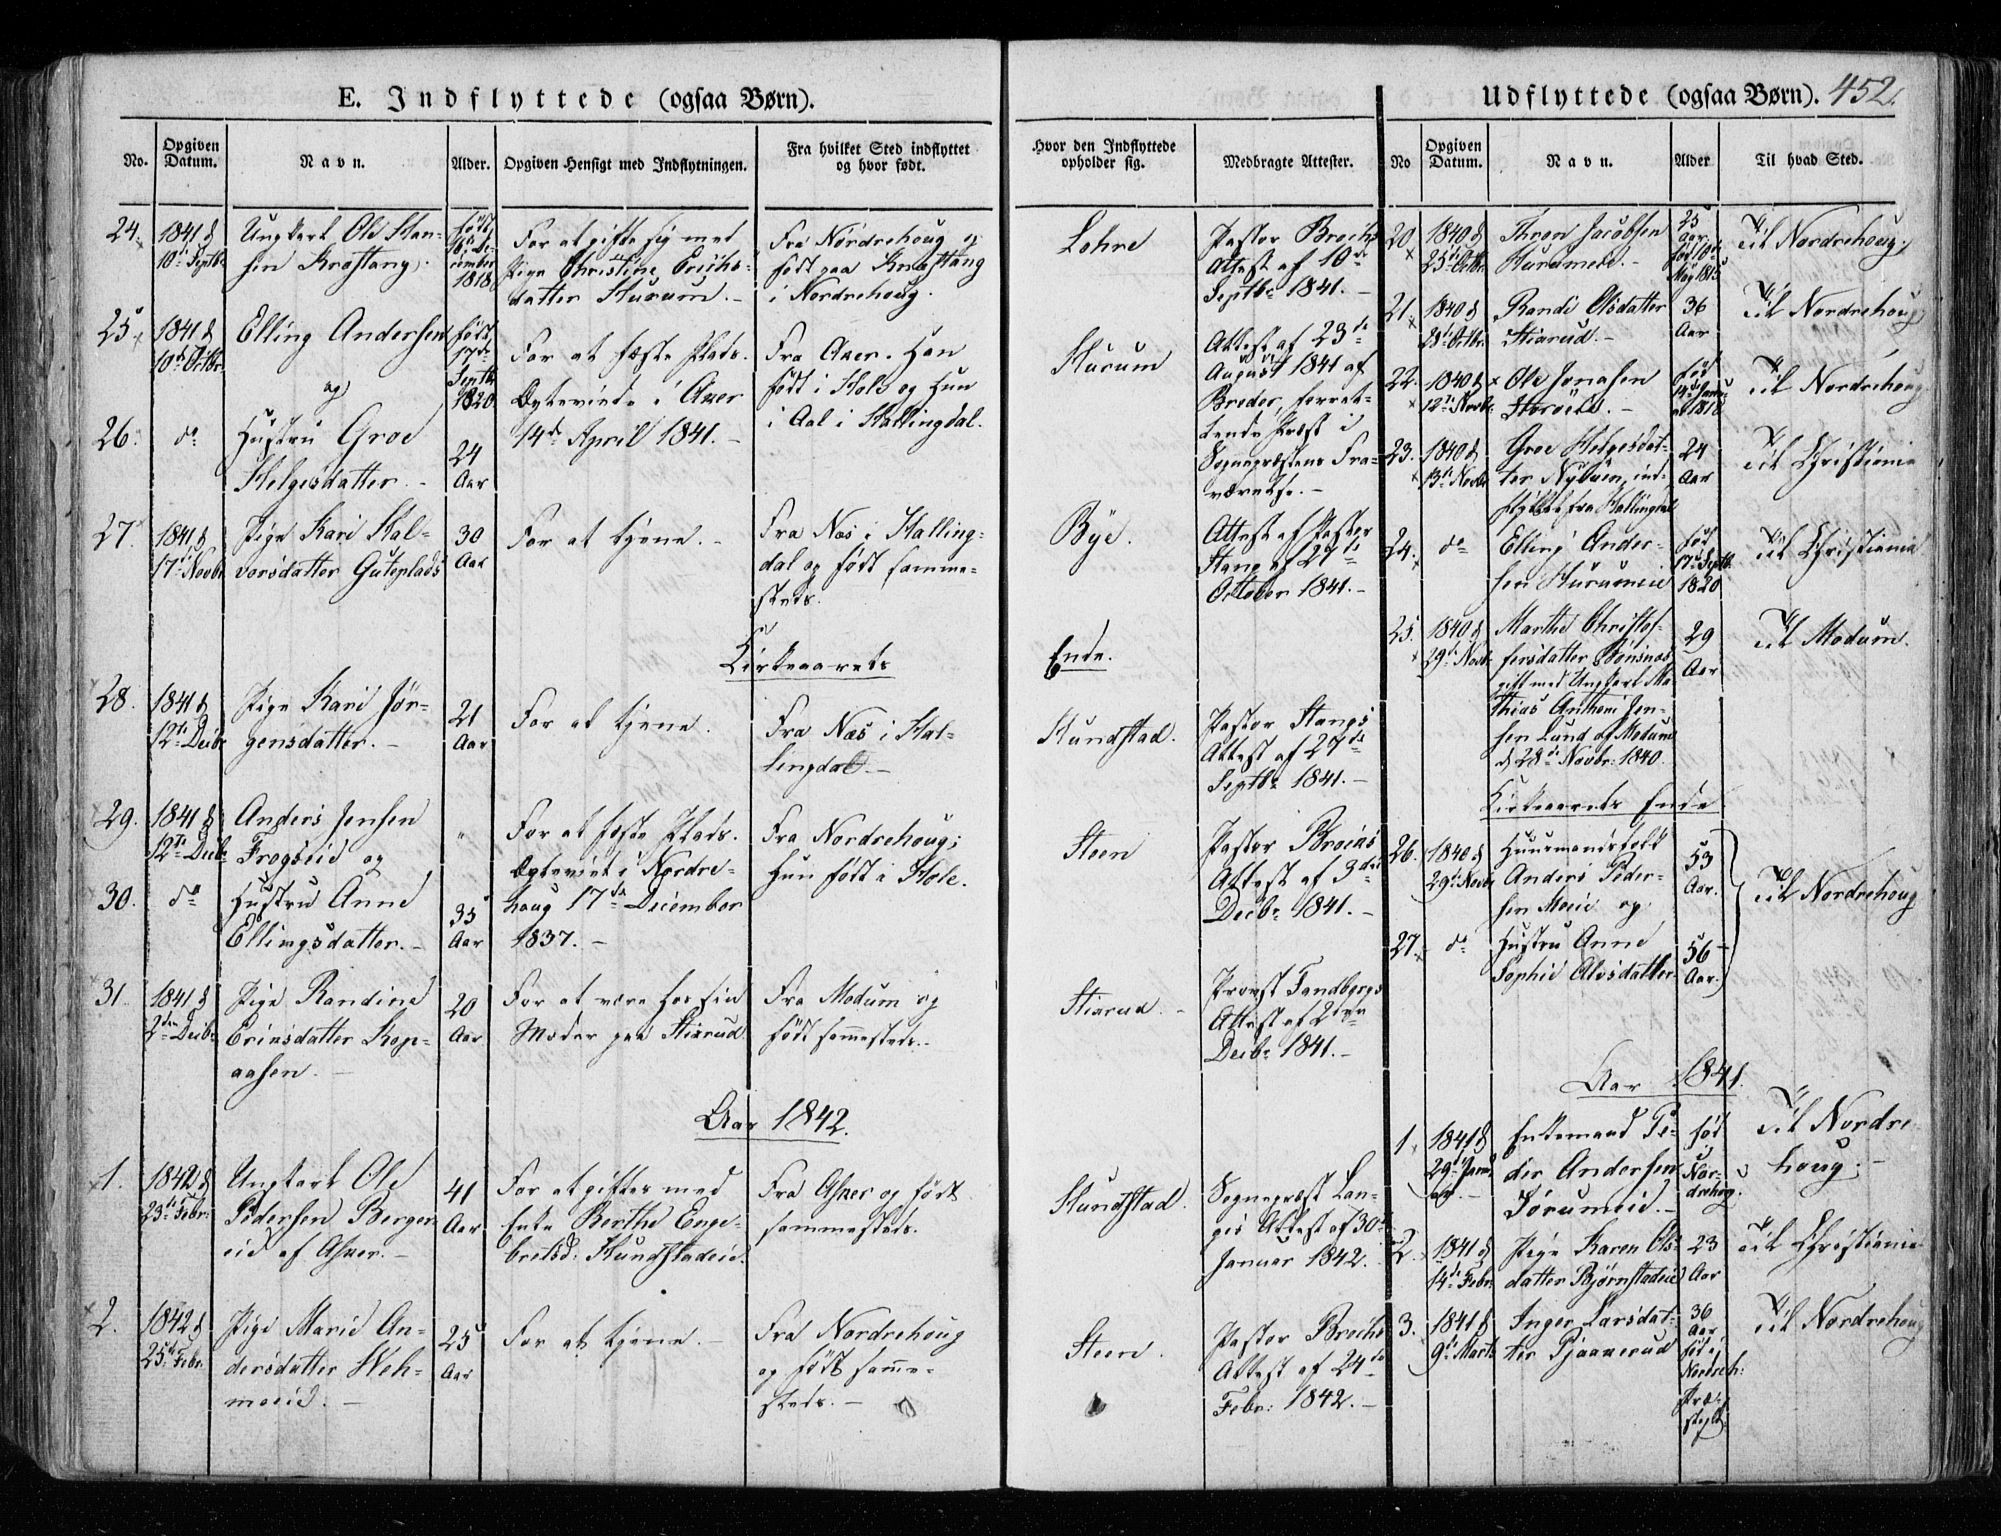 E. Indflyttede (ogsaa Børn).
No.
Opgiven
Datum.
Navn.
Alder.
Opgiven Hensigt med Indflytningen.
Fra hvilket Sted indflyttet
og hvor født.
Hvor den Indflyttede
opholder sig.
Medbragte Attester.
24.
1841 d
10de Septbr
Ungkarl Ole Han-
sen Knæstang.
født
De-
cember
1818
For at gifte sig med
Pige Christine Erichs-
datter Hurum.
Fra Nordrehoug og
født paa Knæstang
i Nordrehoug.
Lohre
Pastor Brochs
Attest af 10de
Septbr 1841.
25
1841 d
10de Octbr
Elling Andersen
og
født
17de
Septbr
1820
For at fæste Plads.
Ægteviede i Asker
14de April 1841.
Fra Asker. Han
født i Hole og Hun
i Aal i Hallingdal.
Hurum
Attest af 23de
August 1841 af
Breder, forret-
tende Præst i
Sognepræstens Fra-
værelse.
26.
do
Hustru Groe
Helgesdatter.
24
Aar
27.
1841 d
17de Novbr
Pige Kari Hal-
vorsdatter Guteplads
30
Aar
For at tjene.
Fra Næs i Halling-
dal og født samme-
steds.
Bye.
Attest af Pastor
Stang af 27de
October 1841.
Kirkeaarets
Ende.
28.
1841 d
12te Decbr
Pige Kari Jør-
gensdatter.
21
Aar
For at tjene.
Fra Næs i Hal-
lingdal.
Hundstad.
Pastor Stangs
Attest af 27de
Septbr 1841.
29.
1841 d
12te Decbr
Anders Jensen
Frogseie og
For at fæste Plads.
Ægteviet i Nordre-
houg 17de December
1837.
Fra Nordrehoug;
Hun født i Hole.
Steen
Pastor Brochs
Attest af 3die
Decbr 1841.
30.
do
Hustru Anne
Ellingsdatter.
35
Aar
31
1841 d
2den Decbr
Pige Randine
Ericsdatter Kop-
aasen.
20
Aar
For at være hos sin
Moder paa Stixrud.
Fra Modum og
født sammesteds.
Stixrud.
Provst Tandbergs
Attest af 2den
Decbr 1841.
Aar 1842.
1.
1842 d
23de Febr:
Ungkarl Ole
Pedersen Berger
eie af Asker.
41
Aar
For at giftes med
Enke Berthe Enge-
bretsd: Hundstadeie.
Fra Asker og født
sammesteds.
Hundstad.
Sognepræst Lan-
ges Attest af 30te
Januar 1842.
2.
1842 d
25de Febr.
Pige Marie An-
dersdatter Weh-
moeie.
25
Aar
For at tjene.
Fra Nordrehoug
og født samme-
steds.
Steen.
Pastor Brochs
Attest af 24de
Febr: 1842.
Udflyttede (ogsaa Børn). 452.
No
Opgiven
Datum.
Navn.
Alder
Til hvad Sted.
20
1840 d
25de Octbr
Thron Jacobsen
Hurumeie.
25
Aar
fød 10de
May 1815
Til Nordrehoug.
21.
1840 d
28de Octbr
Randi Olsdatter
Stixrud.
36
Aar
Til Nordrehoug
22.
1840 d
12te Novbr
Ole Jonasen
Storøeie.
fød
14de Janu-
ar 1818
Til Nordrehoug
23.
1840 d
13de Novbr
Groe Helgesdat-
ter Nybuen, ind-
flyttet fra Hallingdal
24
Aar
Til Christiania
24.
do
Elling Ander-
sen Hurumeie
fød
17de Septb.
1820
Til Christiania
25.
1840 d
29de Novbr
Marthe Christof-
fersdatter Bønsnæs
gift med Ungkarl Ma-
thias Antheni Jen-
sen Lund af Modum
d 28de Novbr: 1840.
29
Aar
Til Modum.
Kirkeaarets Ende
26.
1840 d
29de Novbr
Huusmandsfolk
Anders Peder-
sen Moeie og
53
Aar.
Til Nordrehoug
27.
do
Hustru Anne
Sophie Alvsdatter
56
Aar.
Aar 1841.
1.
1841 d
29de Janu
ar.
Enkemand Pe-
der Andersen
Sørumeie.
fød
i Nor-
drehog.
Til Nordre-
houg.
2.
1841 d
14de Febr.
Pige Karen Ols-
datter Bjørnstadeie
23
Aar
Til Christiania
3.
1841 d
9de Marts
Inger Larsdat-
ter Pjaakerud
36
Aar
fød i
Nordreh:
Præ-
stegd:
Til Nordrehoug